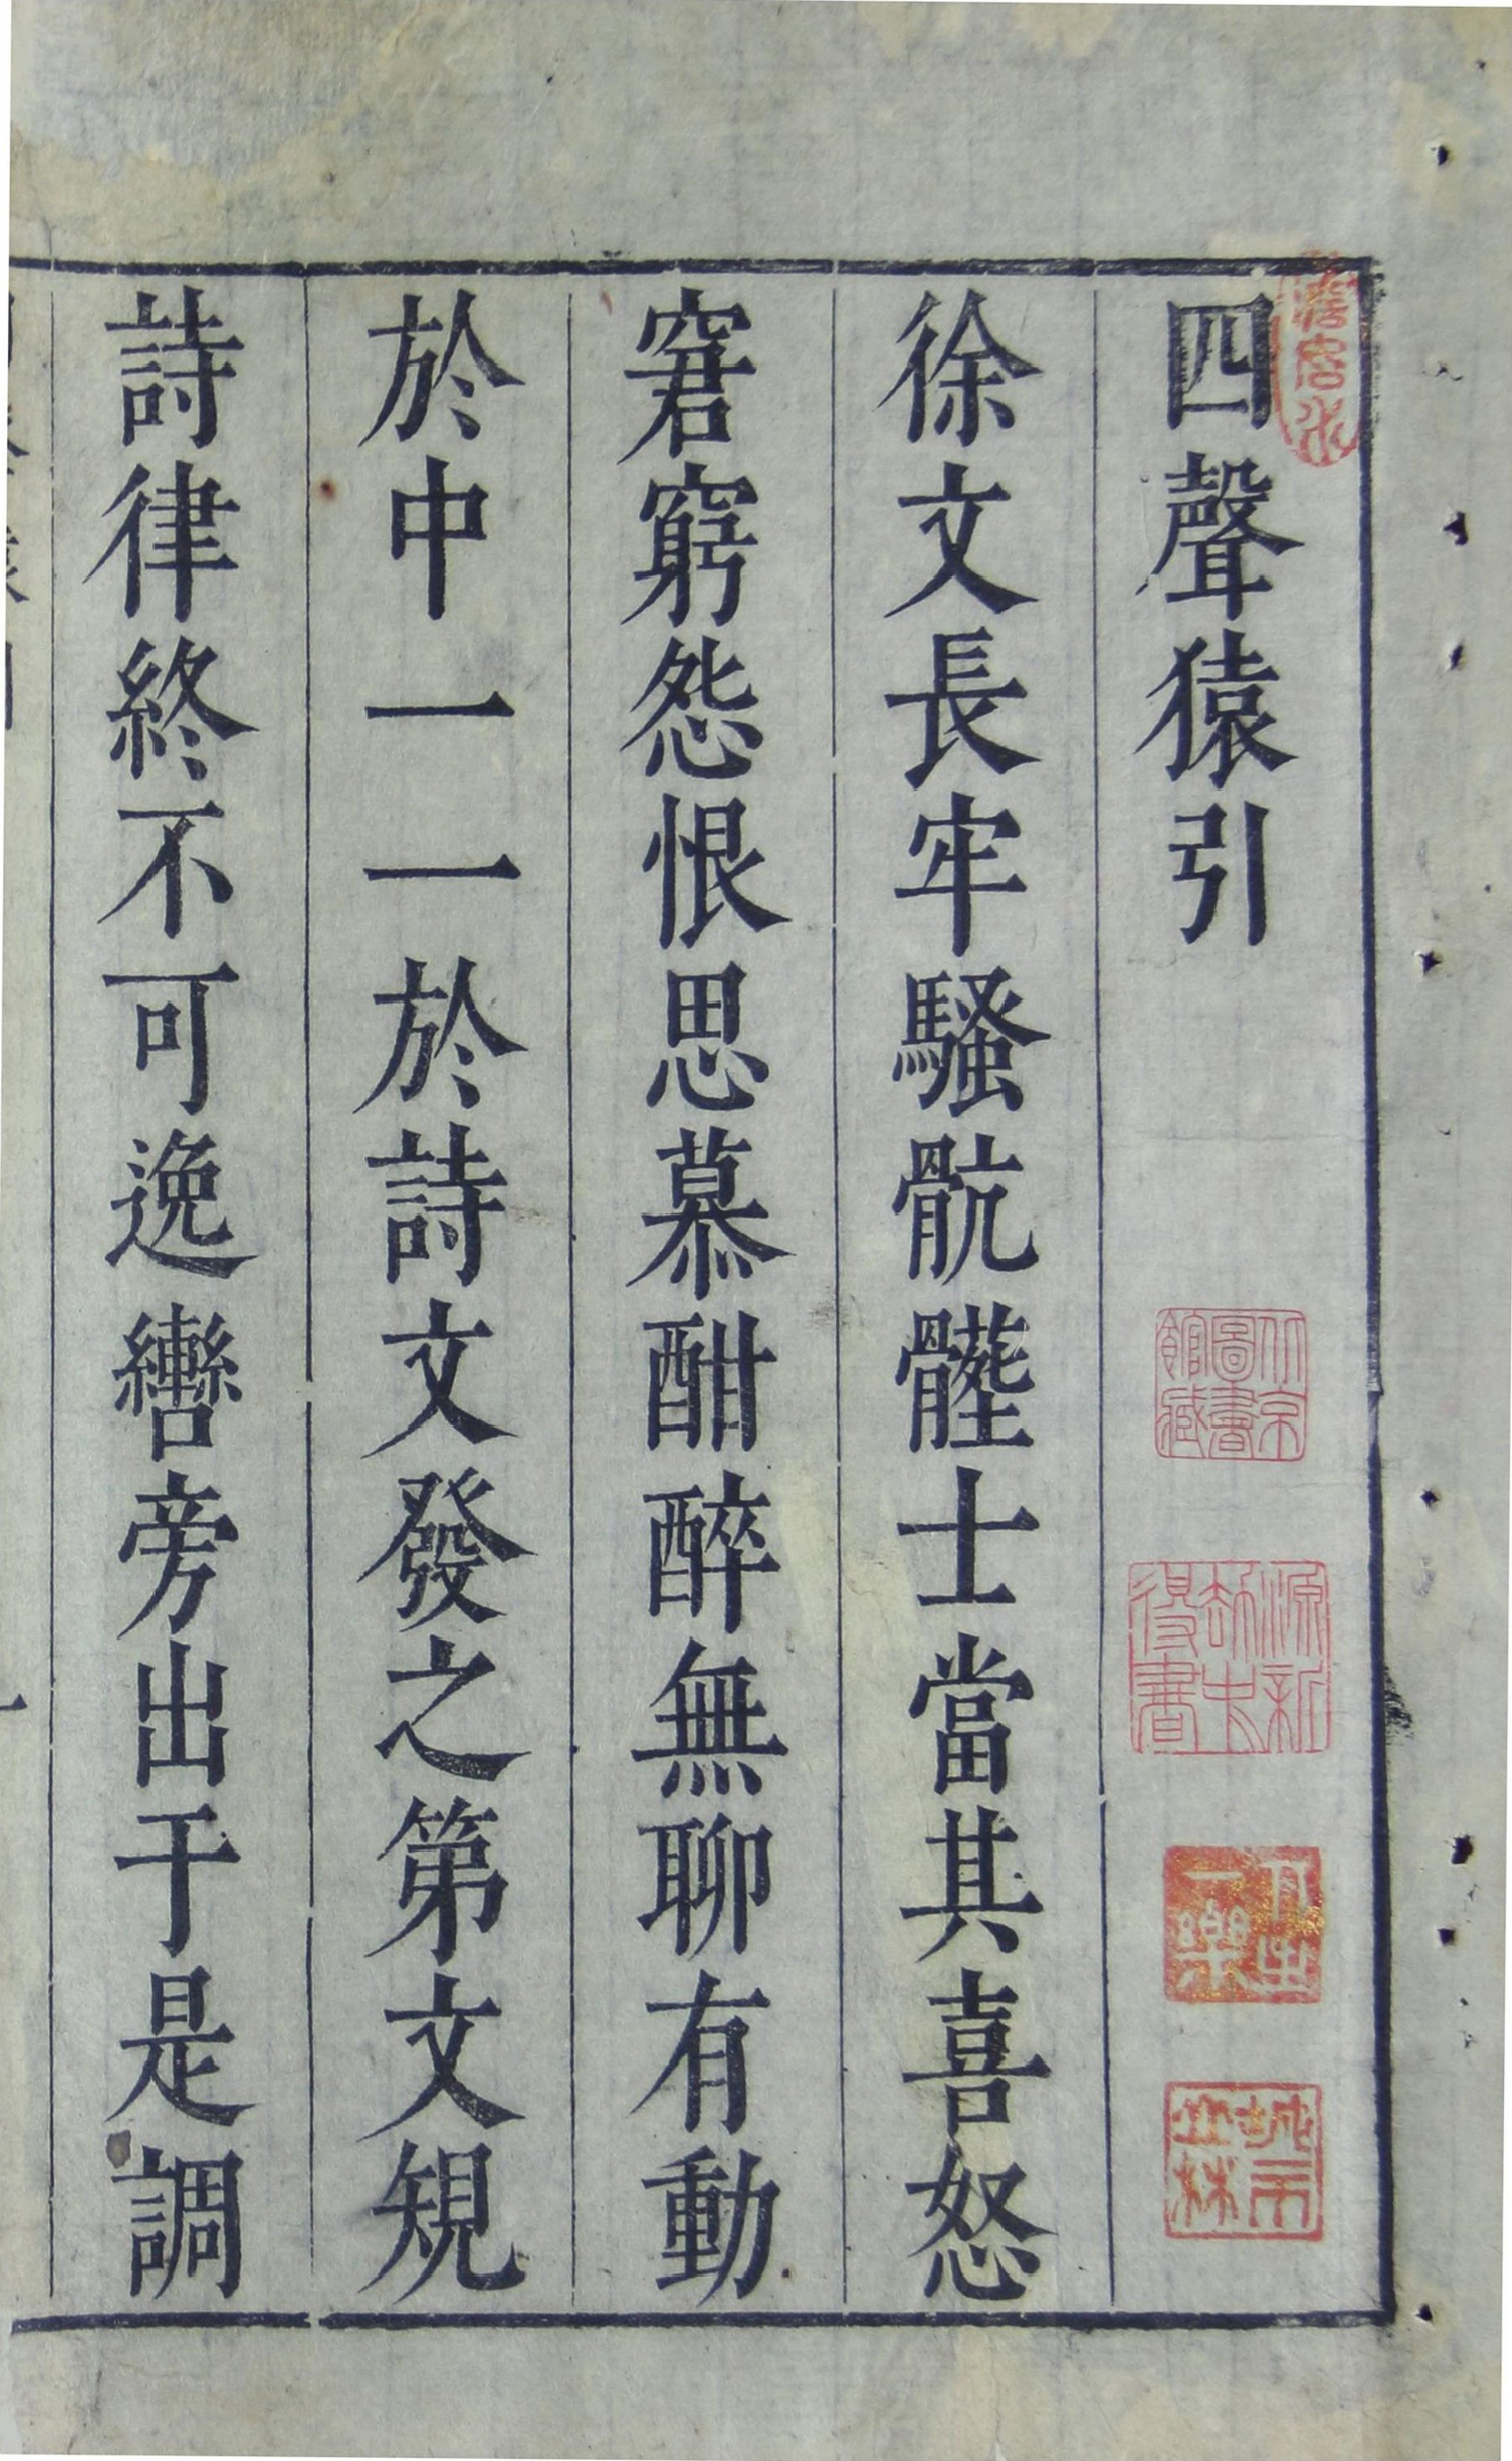 四聲猿引
徐文長牢騷骯髒士當其喜怒
窘窮怨恨思慕酣醉無聊有動
於中一一於詩文發之第文規
詩律終不可逸轡旁出于是調
北京圖書館藏